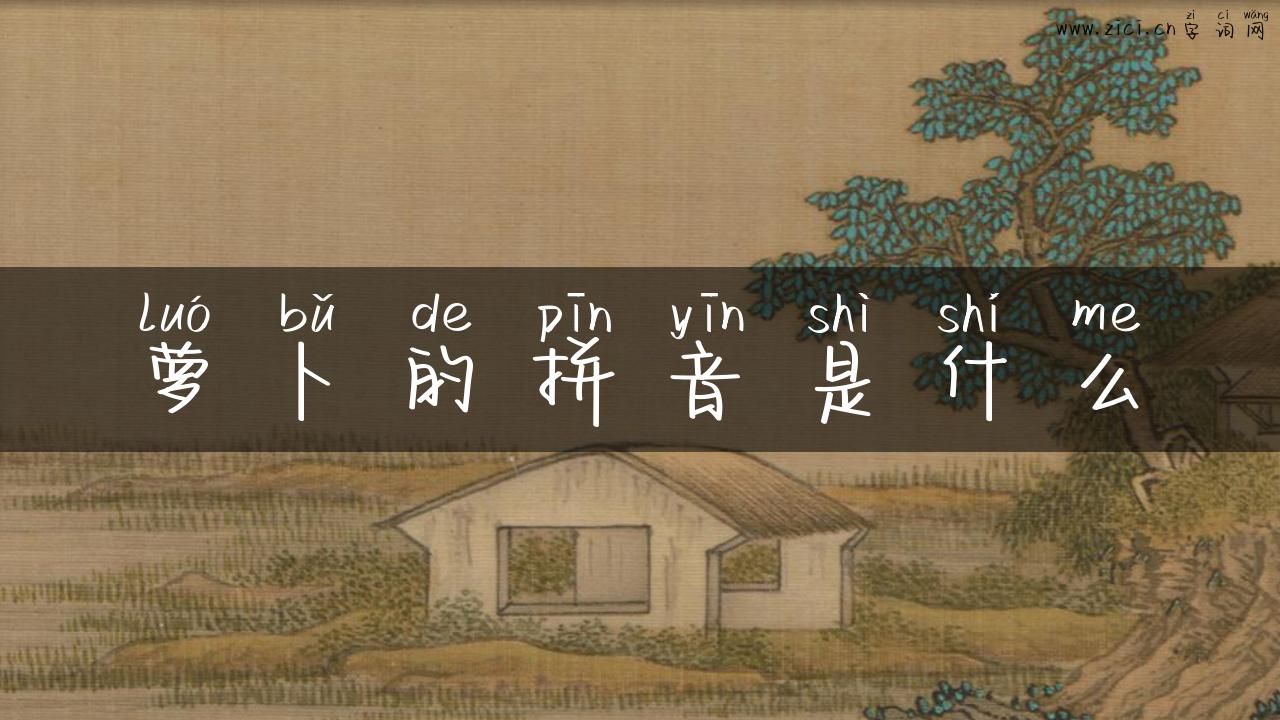 zì cí wǎng
www.zici.cn 字 词 网
luó bǔ de pīn yīn shì shí me
萝 卜 的 拼 音 是 什 么